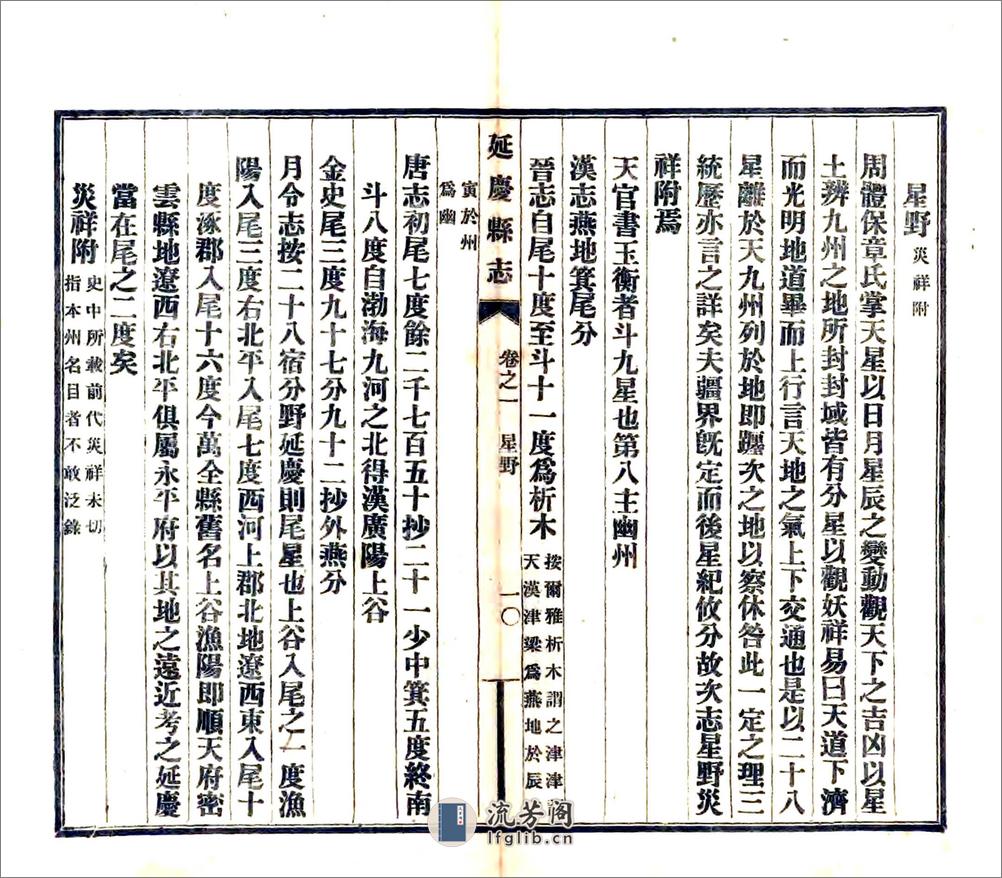 星野災祥附
周體保章氏掌天星以日月星辰之變動觀天下之吉凶以星
土辨九州之地所封封域皆有分星以觀妖祥易曰天道下濟
而光明地道畢而上行言天地之氣上下交通也是以二十八
星離於天九州列於地即躔次之地以察休咎此一定之理三
統歷亦言之詳矣夫疆界既定而後星紀攸分故次志星野災
祥附焉
天官書玉衡者斗九星也第八主幽州
漢志燕地箕尾分
晉志自尾十度至斗十一度爲析木按爾雅析木謂之津津
天漢津梁爲燕地於辰
延慶縣志
卷之一 星野
一〇
寅於州
爲幽
唐志初尾七度餘二千七百五十抄二十一少中箕五度終南
斗八度自渤海九河之北得漢廣陽上谷
金史尾三度九十七分九十二抄外燕分
月令志按二十八宿分野延慶則尾星也上谷入尾之一度漁
陽入尾三度右北平入尾七度西河上郡北地遼西東入尾十
度涿郡入尾十六度今萬全縣舊名上谷漁陽即順天府密
雲縣地遼西右北平俱屬永平府以其地之遠近考之延慶
當在尾之二度矣
災祥附史中所載前代災祥未切
指本州名目者不敢泛錄
流芳阁
lfglib.cn